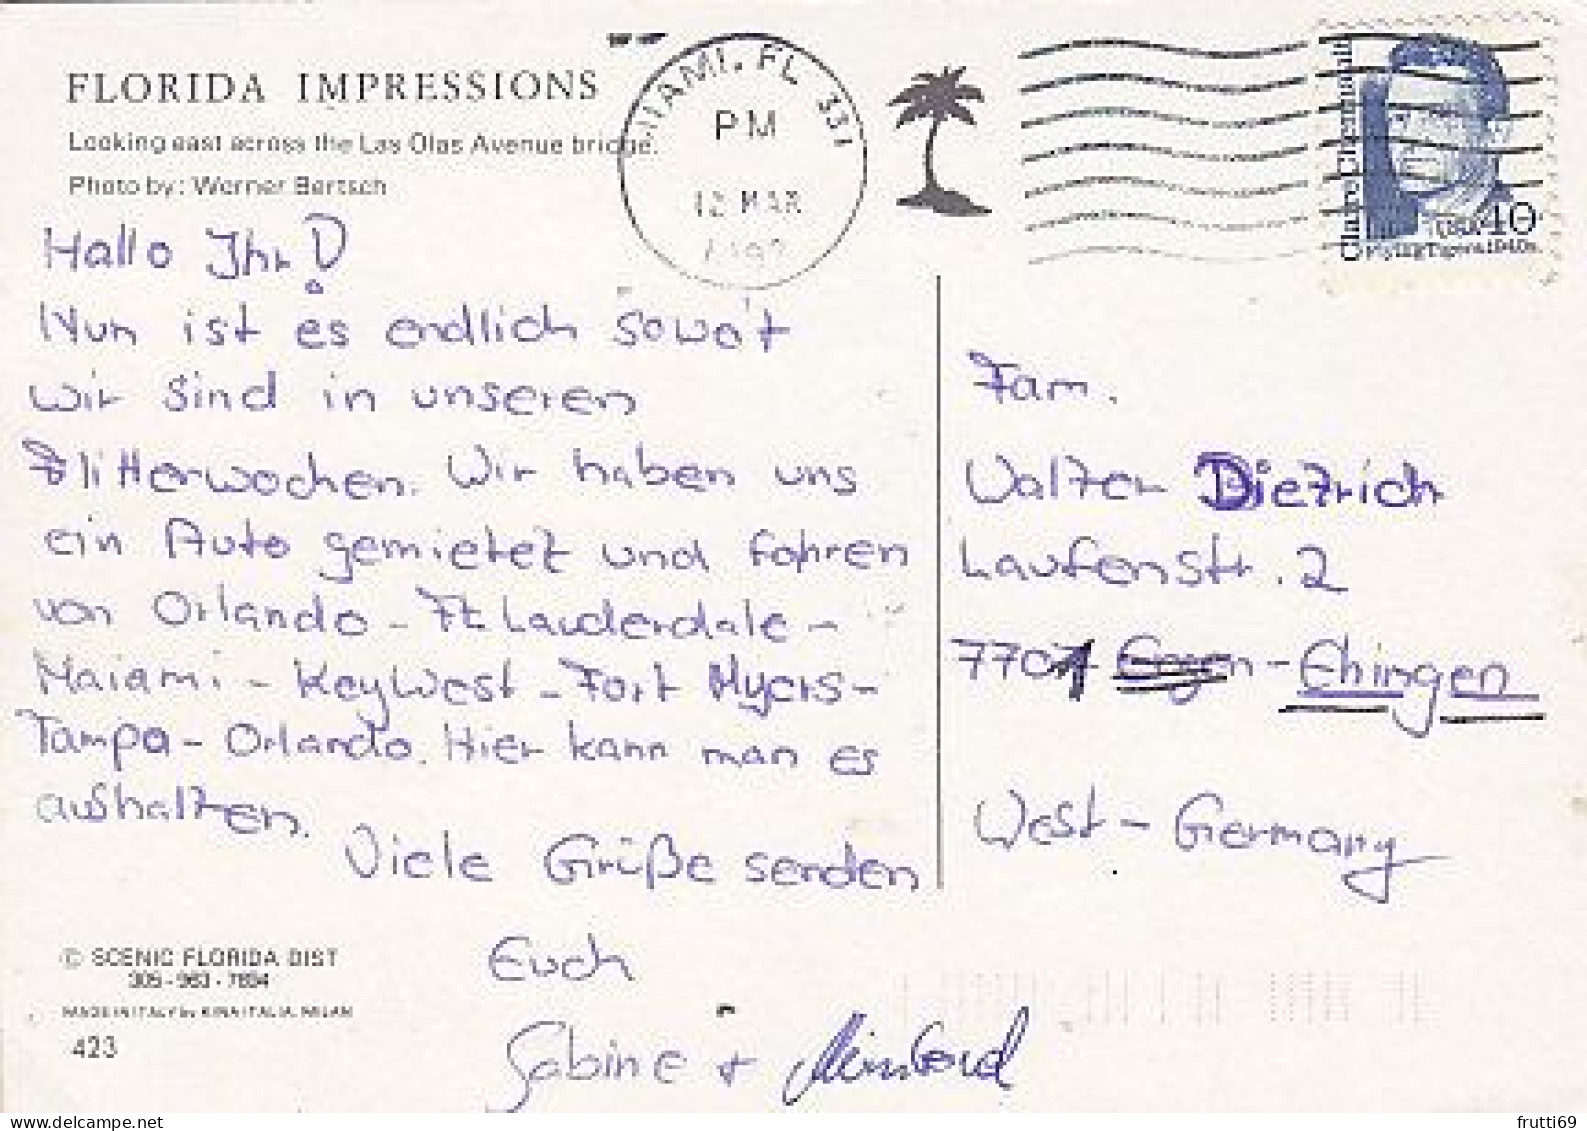 FLORIDA IMPRESSIONS
Looking east across the Las Olas Avenue bridge.
Photo by: Werner Bertsch
MIAMI, FL 331
PM
12 MAR
Claire Chennault
USA 40
Flying Tigers 1940s
Hallo Ihr!
Nun ist es endlich soweit
wir sind in unseren
Flitterwochen. Wir haben uns
ein Auto gemietet und fahren
von Orlando - Ft Lauderdale -
Maiami - Key West - Fort Myers -
Tampa - Orlando. Hier kann man es
aushalten.
Viele Grüße senden
Euch
Sabine +
Fam.
Walter Dietrich
Laufenstr. 2
7701 Engen - Ehingen
West - Germany
© SCENIC FLORIDA DIST
305 - 963 - 7894
MADE IN ITALY by KINA ITALIA, MILAN
423
frutti69